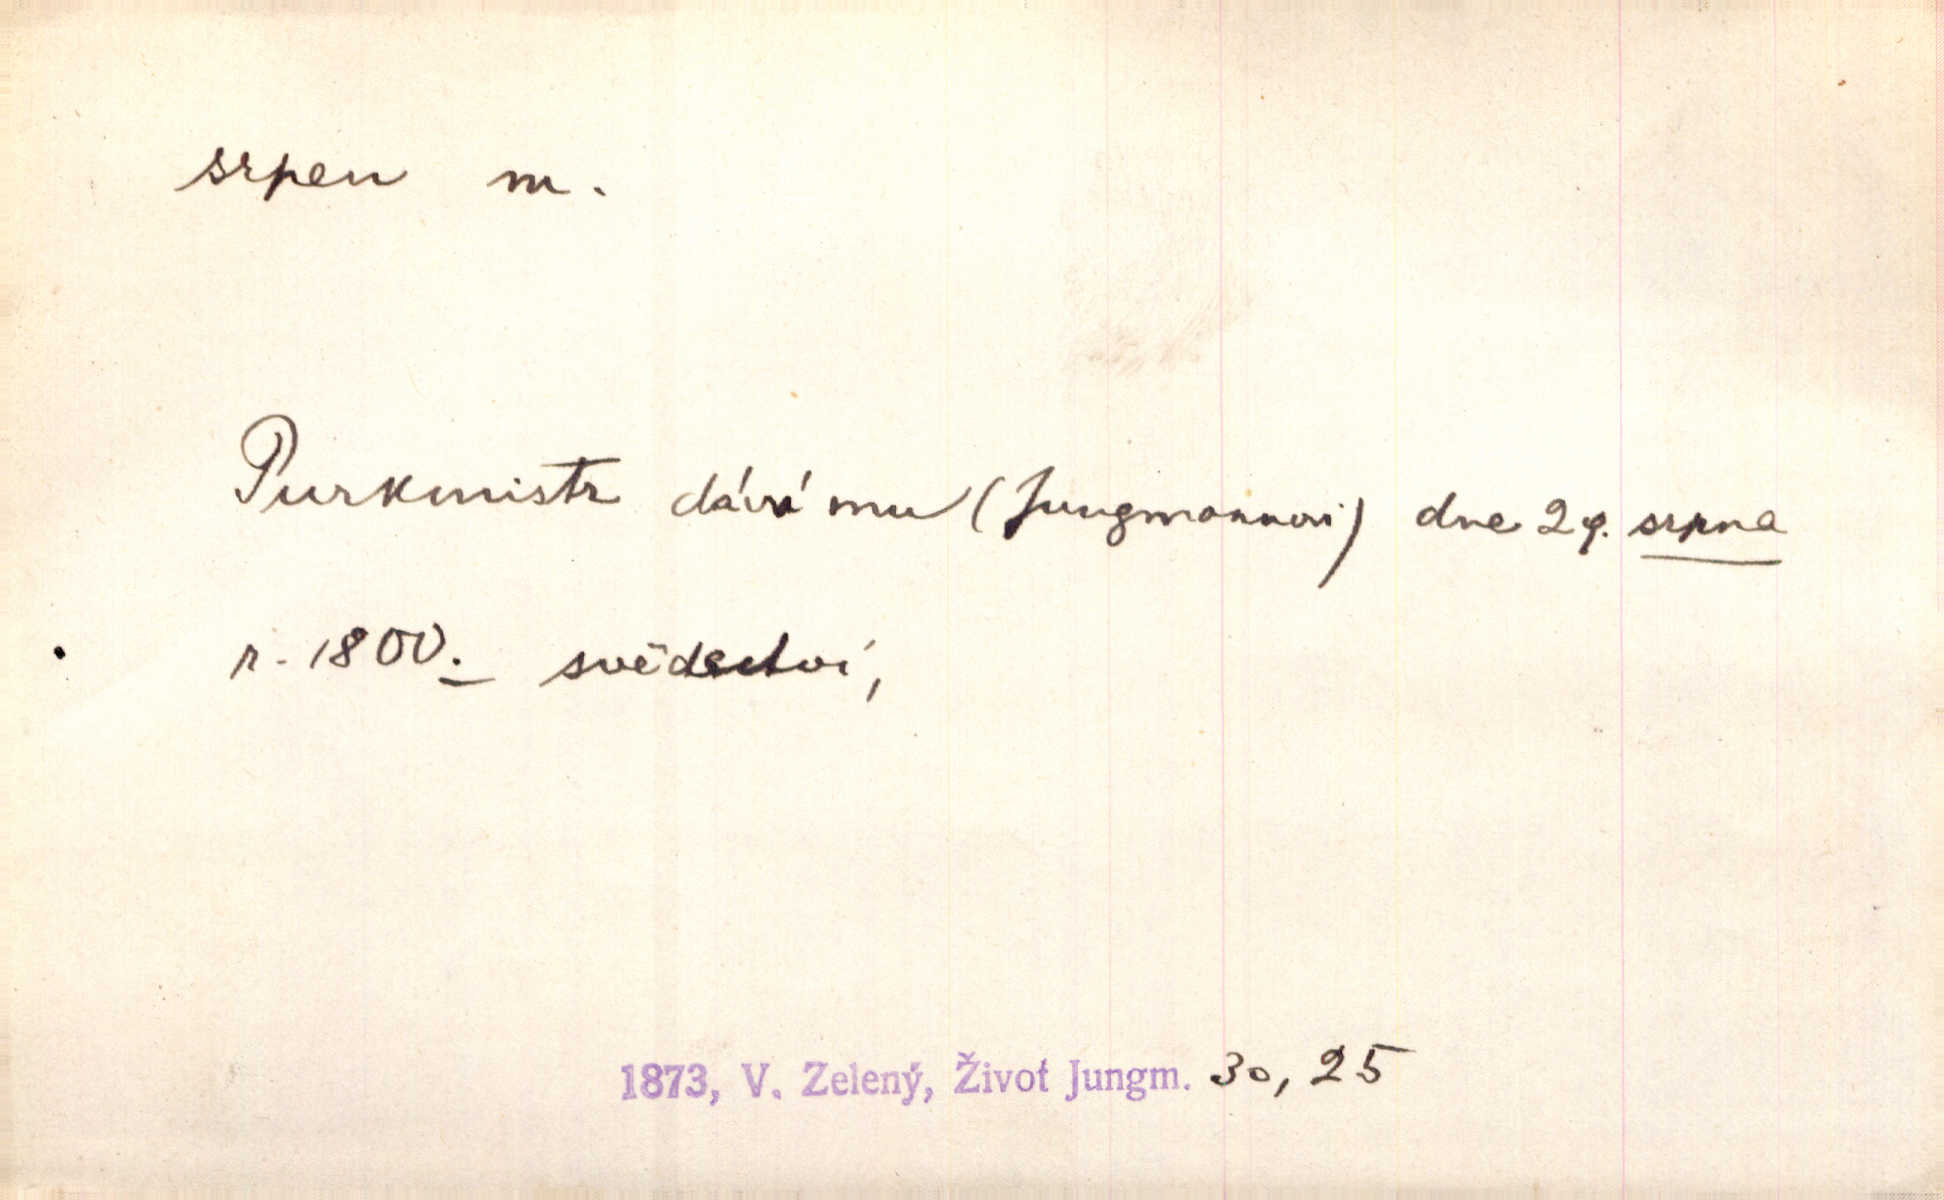 srpen m.
Purkmistr dává mu (Jungmannovi) dne 29. srpna
r. 1800. svědectví,
1873, V. Zelený, Život Jungm. 30, 25